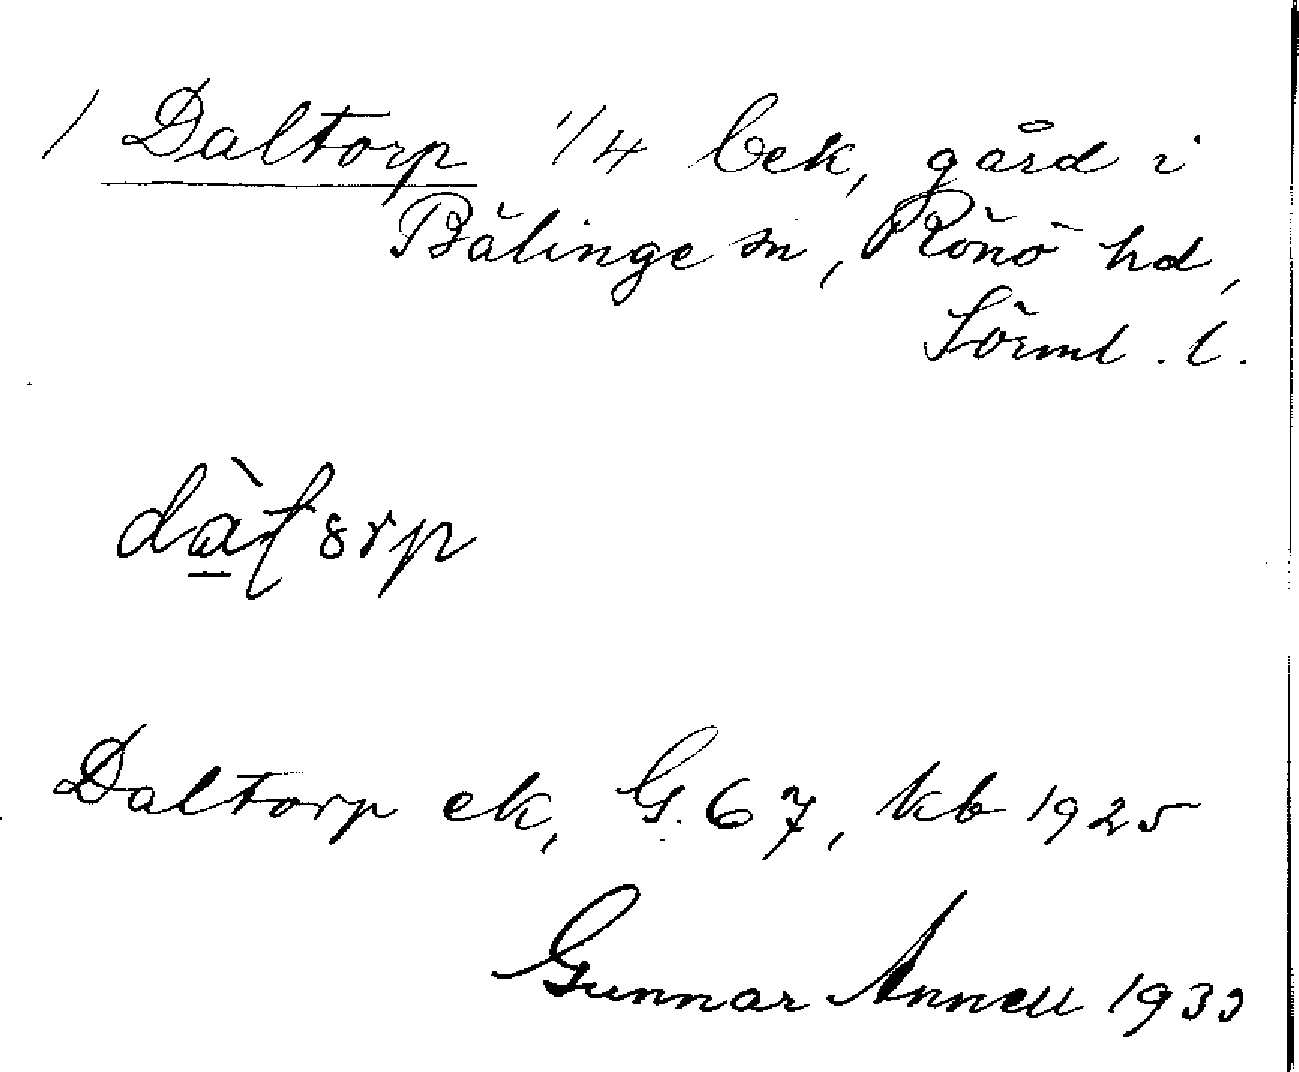 1 Daltorp 1/4 bek, gård i
Bälinge sn, Rönö hd,
Sörml. l.
Daltorp ek, G. 67, kb 1925
Gunnar Annell 1933